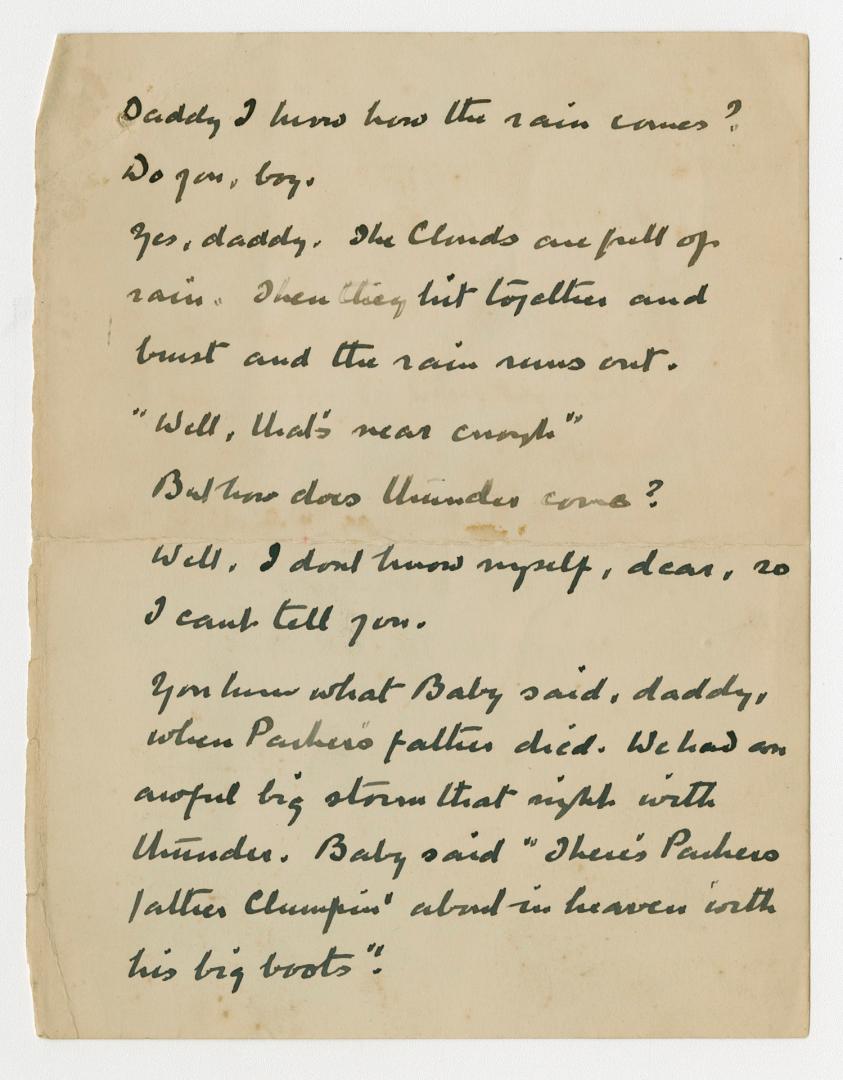 Daddy I know how the rain comes?
Do you, boy.
Yes, daddy. The Clouds are full of
rain. Then they hit together and
burst and the rain runs out.
"Well, that's near enough"
But how does thunder come?
Well, I dont know myself, dear, so
I cant tell you.
You know what Baby said, daddy,
when Parker's father died. We had an
awful big storm that night with
thunder. Baby said "There's Parkers
father Clumpin' about in heaven with
his big boots".